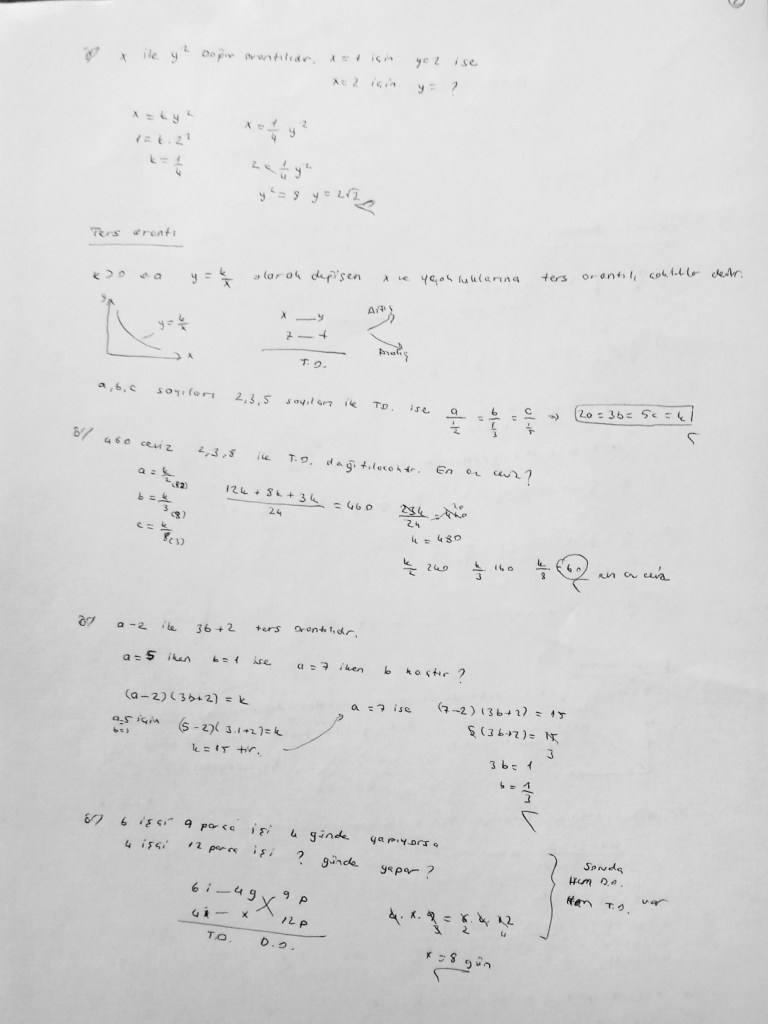 ör/ x ile y² Doğru orantılıdır. x=1 için y=2 ise
x=2 için y= ?
x = k y²
1 = k . 2²
k = 1/4
x = 1/4 y²
2 = 1/4 y²
y² = 8 y = 2√2
Ters orantı
k>0 y = k/x olarak değişen x ve y çokluklarına ters orantılı çokluklar denir.
y
y = k/x
x
x — y
z — t
T.O.
Artış
Azalış
a,b,c sayıları 2,3,5 sayıları ile T.O. ise a/(1/2) = b/(1/3) = c/(1/5) => 2a = 3b = 5c = k
ör/ 460 ceviz 2,3,8 ile T.O. dağıtılacaktır. En az ceviz?
a = k/2 (12)
b = k/3 (8)
c = k/8 (3)
12k + 8k + 3k / 24 = 460
23k/24 = 460 20
k = 480
k/2 240 k/3 160 k/8 = 60 en az ceviz
ör/ a-2 ile 3b+2 ters orantılıdır.
a=5 iken b=1 ise a=7 iken b kaçtır?
(a-2)(3b+2) = k
a=5 için b=1 (5-2)(3.1+2)=k
k=15 tir.
a=7 ise (7-2)(3b+2) = 15
5(3b+2) = 15
3
3b = 1
b = 1/3
ör/ 6 işçi 9 parça işi 4 günde yapıyorsa
4 işçi 12 parça işi ? günde yapar?
6 i — 4g 9 p
4i — x 12 p
T.O. D.O.
4. x. 9 = 6. 4. 12
3 2 4
x = 8 gün
Soruda
Hem D.O.
Hem T.O. var